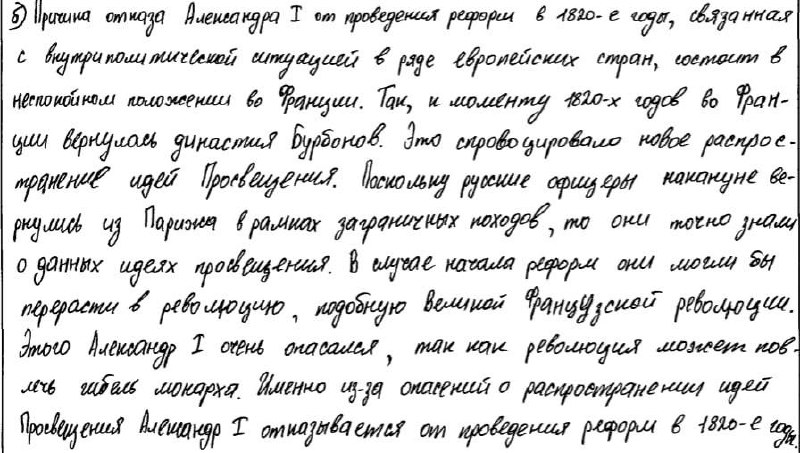 б) Причина отказа Александра I от проведения реформ в 1820-е годы, связанная
с внутриполитической ситуацией в ряде европейских стран, состоит в
неспокойном положении во Франции. Так, к моменту 1820-х годов во Фран-
ции вернулась династия Бурбонов. Это спровоцировало новое распрос-
транение идей Просвещения. Поскольку русские офицеры накануне ве-
рнулись из Парижа в рамках заграничных походов, то они точно знали
о данных идеях просвещения. В случае начала реформ они могли бы
перерасти в революцию, подобную Великой Французской революции.
Этого Александр I очень опасался, так как революция может пов-
лечь гибель монарха. Именно из-за опасений о распространении идей
Просвещения Александр I отказывается от проведения реформ в 1820-е годы.